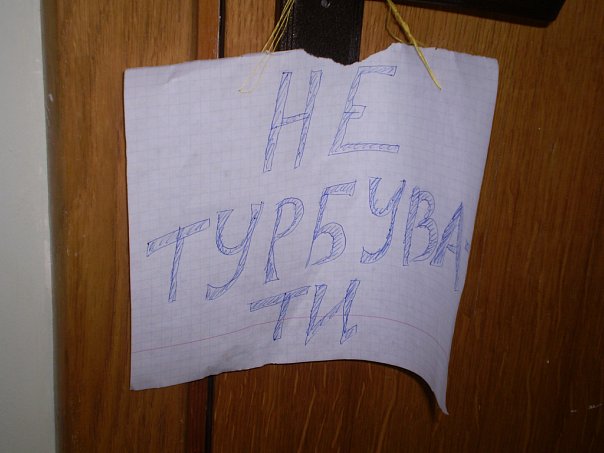 НЕ
ТУРБУВА-
ТИ